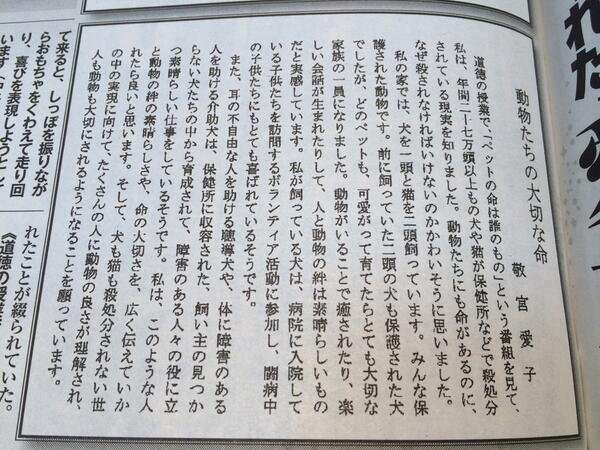 動物たちの大切な命
敬宮愛子
道徳の授業で、「ペットの命は誰のもの」という番組を見て、
私は、年間二十七万頭以上もの犬や猫が保健所などで殺処分
されている現実を知りました。動物たちにも命があるのに、
なぜ殺されなければいけないのかかわいそうに思いました。
私の家では、犬を一頭と猫を二頭飼っています。みんな保
護された動物です。前に飼っていた二頭の犬も保護された犬
でしたが、どのペットも、可愛がって育てたらとても大切な
家族の一員になりました。動物がいることで癒されたり、楽
しい会話が生まれたりして、人と動物の絆は素晴らしいもの
だと実感しています。私が飼っている犬は、病院に入院して
いる子供たちを訪問するボランティア活動に参加し、闘病中
の子供たちにもとても喜ばれているそうです。
また、耳の不自由な人を助ける聴導犬や、体に障害のある
人を助ける介助犬は、保健所に収容された、飼い主の見つか
らない犬たちの中から育成されて、障害のある人々の役に立
つ素晴らしい仕事をしているそうです。私は、このような人
と動物の絆の素晴らしさや、命の大切さを、広く伝えていか
れたら良いと思います。そして、犬も猫も殺処分されない世
の中の実現に向けて、たくさんの人に動物の良さが理解され、
人も動物も大切にされるようになることを願っています。
て来ると、しっぽを振りなが
らおもちゃをくわえて走り回
り、喜びを表現しようとして
れたことが綴られていた。